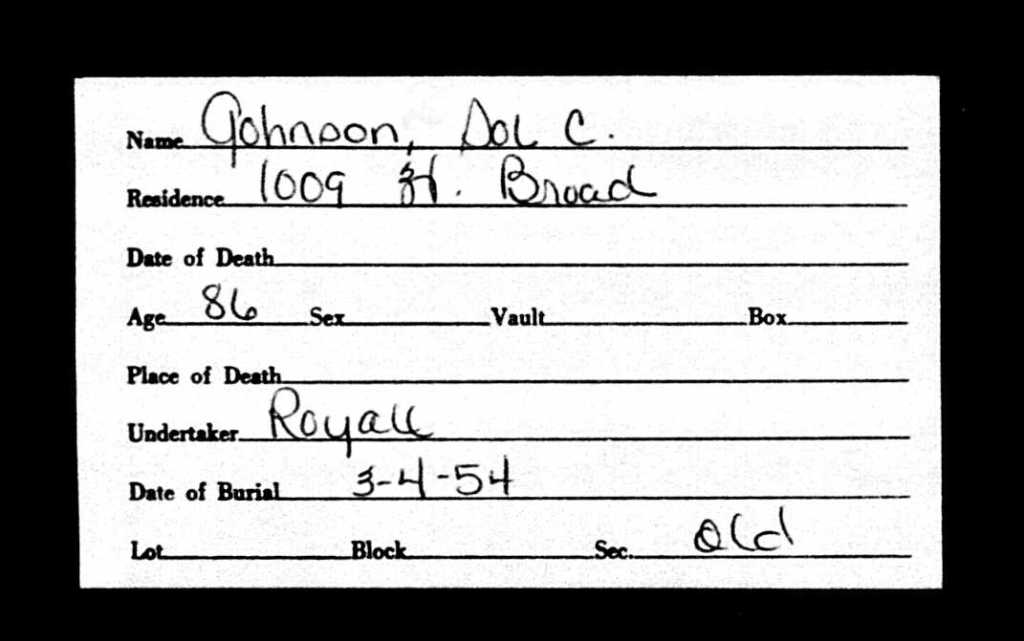 Name Johnson, Sol C.
Residence 1009 W. Broad
Date of Death
Age 86 Sex Vault Box
Place of Death
Undertaker Royall
Date of Burial 3-4-54
Lot Block Sec. Old